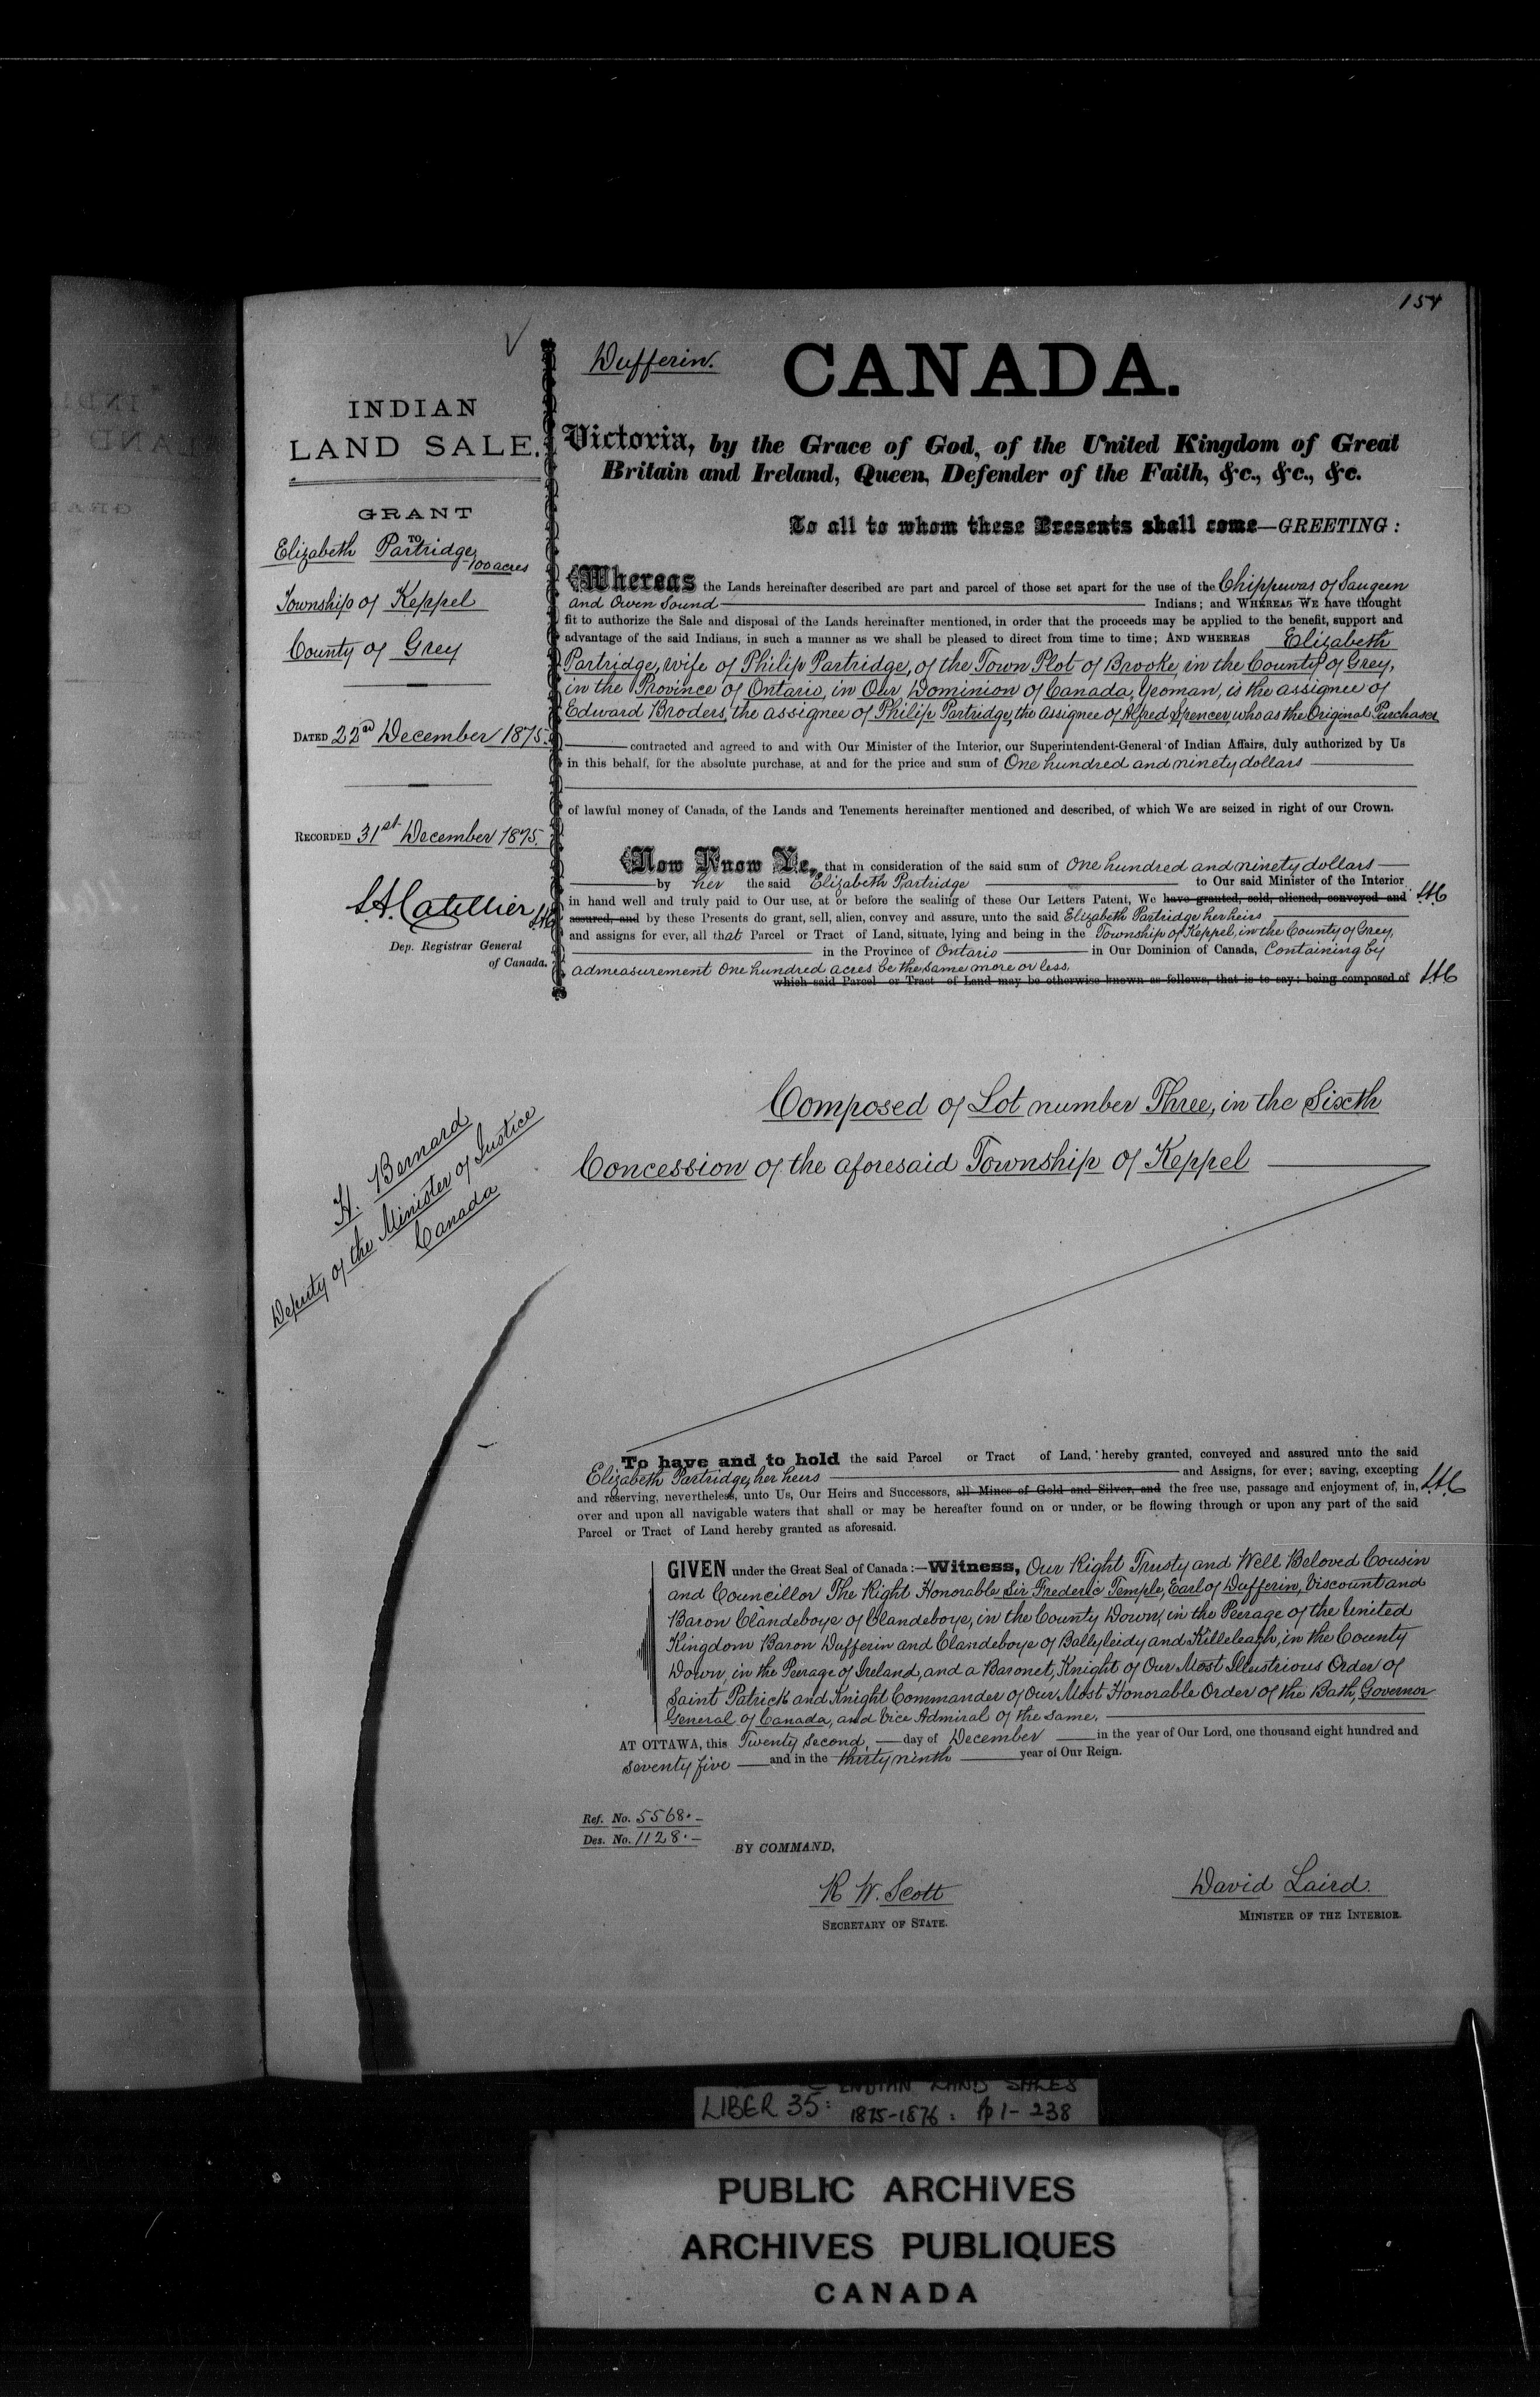 154
Dufferin.
CANADA.
INDIAN
LAND SALE.
GRANT
TO
Elizabeth Partridge
100 acres
Township of Keppel
County of Grey
DATED 22nd December 1875.
RECORDED 31st December 1875.
L.A. Catellier
L.A.C
Dep. Registrar General
of Canada.
H. Bernard
Deputy of the Minister of Justice
Canada
Victoria, by the Grace of God, of the United Kingdom of Great
Britain and Ireland, Queen, Defender of the Faith, &c., &c., &c.
To all to whom these Presents shall come—GREETING :
Whereas the Lands hereinafter described are part and parcel of those set apart for the use of the Chippewas of Saugeen
and Owen Sound Indians; and WHEREAS WE have thought
fit to authorize the Sale and disposal of the Lands hereinafter mentioned, in order that the proceeds may be applied to the benefit, support and
advantage of the said Indians, in such a manner as we shall be pleased to direct from time to time; AND WHEREAS Elizabeth
Partridge, wife of Philip Partridge, of the Town Plot of Brooke, in the County of Grey,
in the Province of Ontario, in Our Dominion of Canada, Yeoman, is the assignee of
Edward Broders, the assignee of Philip Partridge, the Assignee of Alfred Spencer, who as the Original Purchaser
contracted and agreed to and with Our Minister of the Interior, our Superintendent-General of Indian Affairs, duly authorized by Us
in this behalf, for the absolute purchase, at and for the price and sum of One hundred and ninety dollars
of lawful money of Canada, of the Lands and Tenements hereinafter mentioned and described, of which We are seized in right of our Crown.
Now Know Ye, that in consideration of the said sum of One hundred and ninety dollars
by her the said Elizabeth Partridge to Our said Minister of the Interior
in hand well and truly paid to Our use, at or before the sealing of these Our Letters Patent, We have granted, sold, aliened, conveyed and L.A.C
assured, and by these Presents do grant, sell, alien, convey and assure, unto the said Elizabeth Partridge her heirs
and assigns for ever, all that Parcel or Tract of Land, situate, lying and being in the Township of Keppel, in the County of Grey,
in the Province of Ontario in Our Dominion of Canada, Containing by
admeasurement One hundred acres be the same more or less,
which said Parcel or Tract of Land may be otherwise known as follows, that is to say: being composed of L.A.C
Composed of Lot number Three, in the Sixth
Concession of the aforesaid Township of Keppel
To have and to hold the said Parcel or Tract of Land, hereby granted, conveyed and assured unto the said
Elizabeth Partridge, her heirs and Assigns, for ever; saving, excepting
and reserving, nevertheless, unto Us, Our Heirs and Successors, all Mines of Gold and Silver, and the free use, passage and enjoyment of, in, L.A.C
over and upon all navigable waters that shall or may be hereafter found on or under, or be flowing through or upon any part of the said
Parcel or Tract of Land hereby granted as aforesaid.
GIVEN under the Great Seal of Canada :—Witness, Our Right Trusty and Well Beloved Cousin
and Councillor The Right Honorable Sir Frederic Temple, Earl of Dufferin, Viscount and
Baron Clandeboye of Clandeboye, in the County Down, in the Peerage of the United
Kingdom Baron Dufferin and Clandeboye of Ballyleidy and Killeleagh, in the County
Down, in the Peerage of Ireland, and a Baronet, Knight of Our Most Illustrious Order of
Saint Patrick and Knight Commander of Our Most Honorable Order of the Bath, Governor
General of Canada, and Vice Admiral of the same.
AT OTTAWA, this Twenty second, day of December in the year of Our Lord, one thousand eight hundred and
seventy five and in the thirty ninth year of Our Reign.
Ref. No. 5568.-
Des. No. 1128.-
BY COMMAND,
R W. Scott
SECRETARY OF STATE.
David Laird.
MINISTER OF THE INTERIOR.
INDIAN LAND SALES
LIBER 35: 1875-1876: Pp 1-238
PUBLIC ARCHIVES
ARCHIVES PUBLIQUES
CANADA